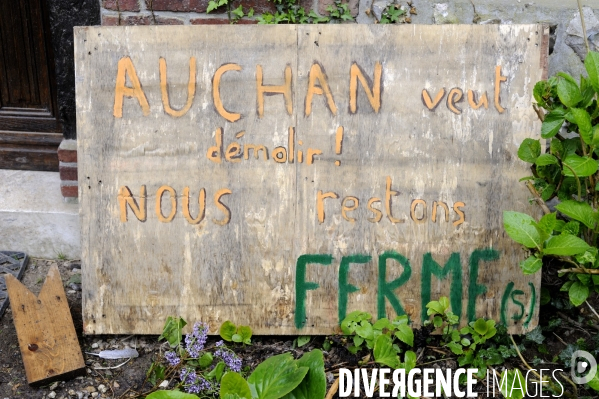 AUCHAN veut
démolir !
NOUS restons
FERME(s)
DIVERGENCE IMAGES